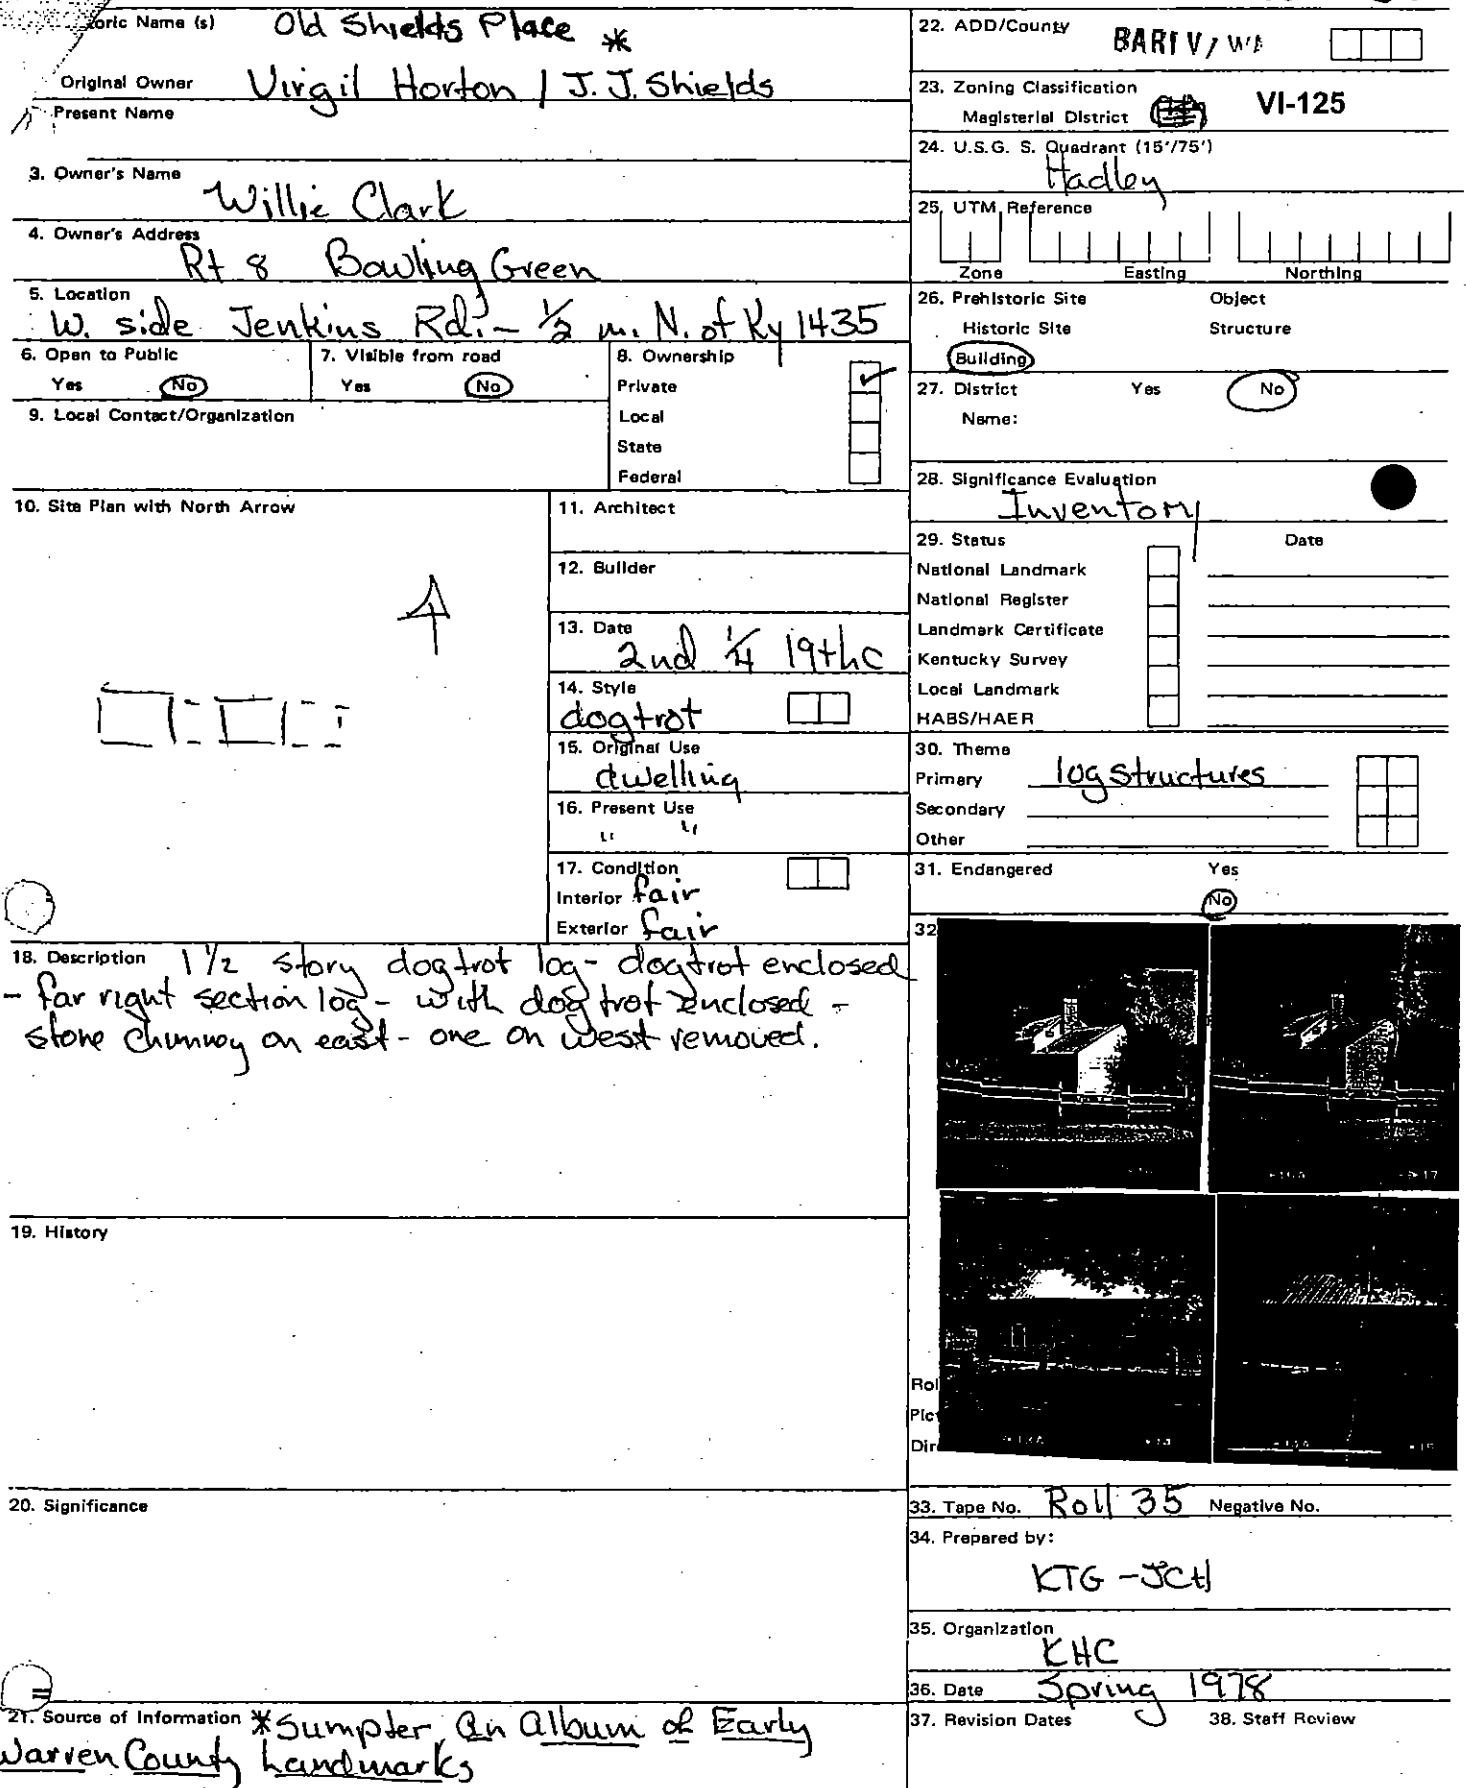 oric Name (s) Old Shields Place *
Original Owner Virgil Horton / J.J. Shields
Present Name
3. Owner's Name Willie Clark
4. Owner's Address Rt 8 Bowling Green
5. Location W. side Jenkins Rd. - 1/2 m. N. of Ky 1435
6. Open to Public
Yes No
7. Visible from road
Yes No
8. Ownership
Private ✓
Local
State
Federal
9. Local Contact/Organization
10. Site Plan with North Arrow
11. Architect
12. Builder
13. Date
2nd 1/4 19th c
14. Style
dogtrot
15. Original Use
dwelling
16. Present Use
" "
17. Condition
Interior fair
Exterior fair
18. Description 1 1/2 story dogtrot log - dogtrot enclosed
- far right section log - with dog trot enclosed -
stone chimney on east - one on west removed.
19. History
20. Significance
21. Source of Information *Sumpter, An Album of Early
Warren County Landmarks
22. ADD/County
23. Zoning Classification
Magisterial District VI-125
24. U.S.G. S. Quadrant (15'/75')
Hadley
25. UTM Reference
Zone Easting Northing
26. Prehistoric Site Object
Historic Site Structure
Building
27. District Yes No
Name:
28. Significance Evaluation
Inventory
29. Status Date
National Landmark
National Register
Landmark Certificate
Kentucky Survey
Local Landmark
HABS/HAER
30. Theme
Primary log structures
Secondary
Other
31. Endangered Yes
No
32
Rol
Pic
Dir
33. Tape No. Roll 35 Negative No.
34. Prepared by:
KTG - JCH
35. Organization
KHC
36. Date Spring 1978
37. Revision Dates 38. Staff Review